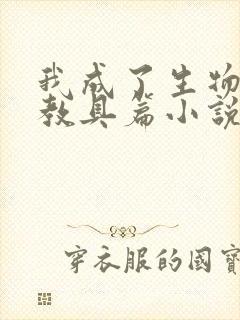 我成了生物
教具篇小說
穿衣服的國寶